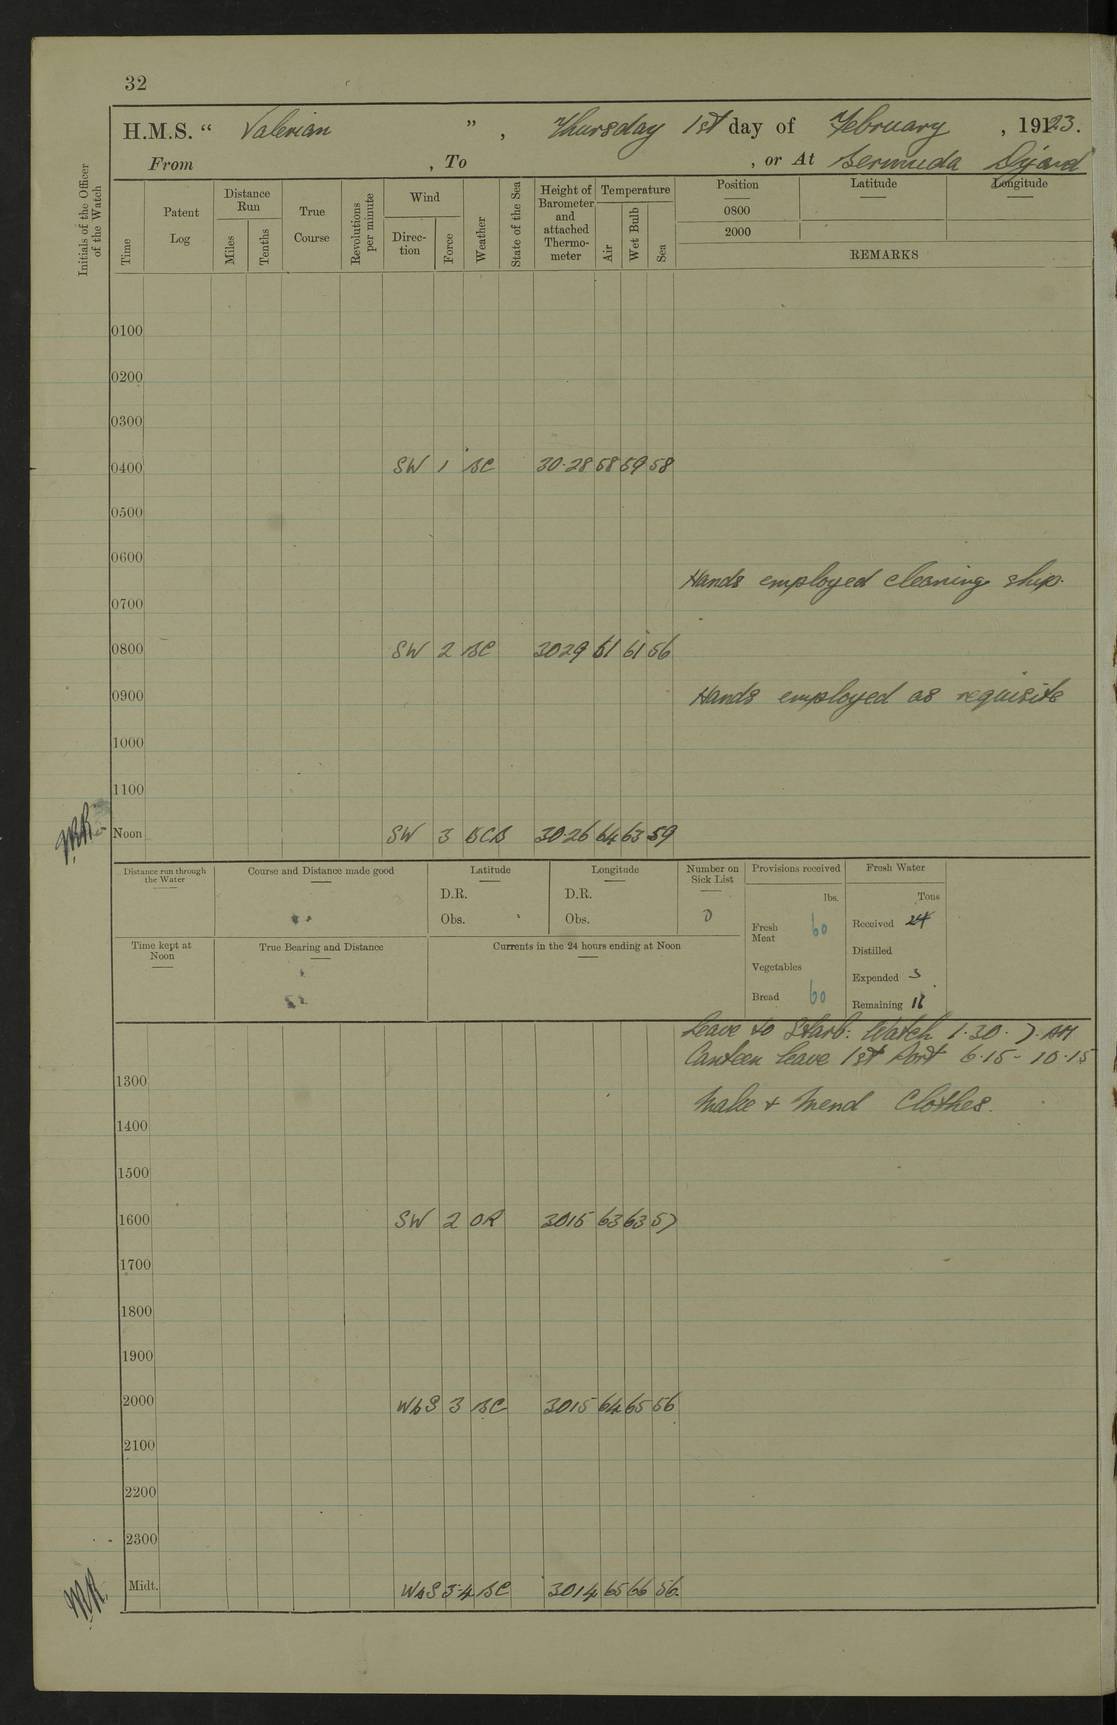 32
H.M.S. “ Valerian ” , Thursday 1st day of February , 1923.
From , To , or At Bermuda Dyard
Initials of the Officer of the Watch
Time
Patent Log
Distance Run
Miles
Tenths
True Course
Revolutions per minute
Wind
Direction
Force
Weather
State of the Sea
Height of Barometer and attached Thermometer
Temperature
Air
Wet Bulb
Sea
Position Latitude Longitude
0800
2000
REMARKS
0100
0200
0300
0400 SW 1 BC 30.28 58 59 58
0500
0600
Hands employed cleaning ship.
0700
0800 SW 2 BC 3029 61 61 56
0900 Hands employed as requisite
1000
1100
Noon SW 3 BCB 30.26 64 63 59
Distance run through the Water
Course and Distance made good
Latitude
D.R.
Obs.
Longitude
D.R.
Obs.
Number on Sick List
0
Provisions received
lbs.
Fresh Meat 60
Vegetables
Bread 60
Fresh Water
Tons
Received 24
Distilled
Expended 3
Remaining
Time kept at Noon
True Bearing and Distance
Currents in the 24 hours ending at Noon
Leave to Starb: Watch 1.30. 7. AM
Canteen leave 1st Port 6.15 - 10.15
1300
Make & Mend Clothes.
1400
1500
1600 SW 2 OR 3015 63 63 57
1700
1800
1900
2000 WbS 3 BC 3015 64 65 56
2100
2200
2300
Midt. WbS 3-4 BC 3014 65 66 56.